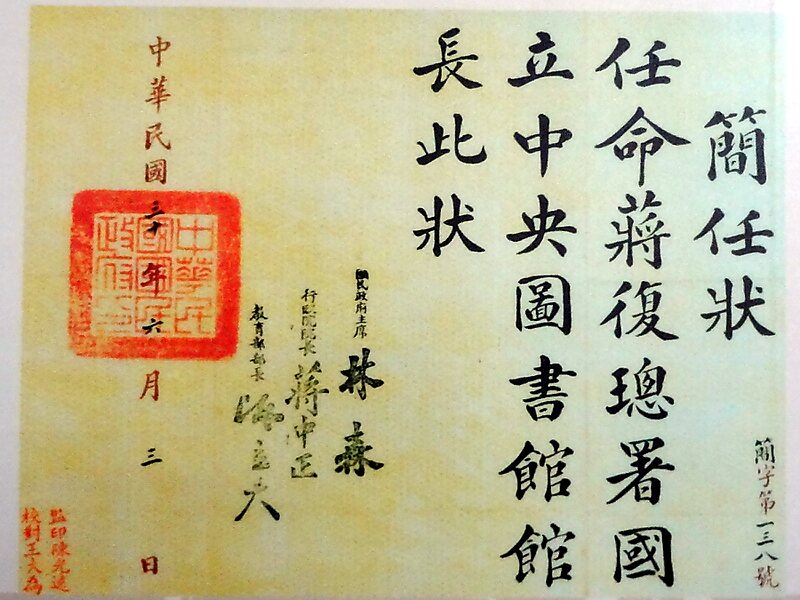 簡任狀
任命蔣復璁署國
立中央圖書館館
長此狀
國民政府主席 林森
行政院院長 蔣中正
教育部部長 陳立夫
中華民國三十年六月三日
簡字第一三八號
監印陳光遠
校對王大為